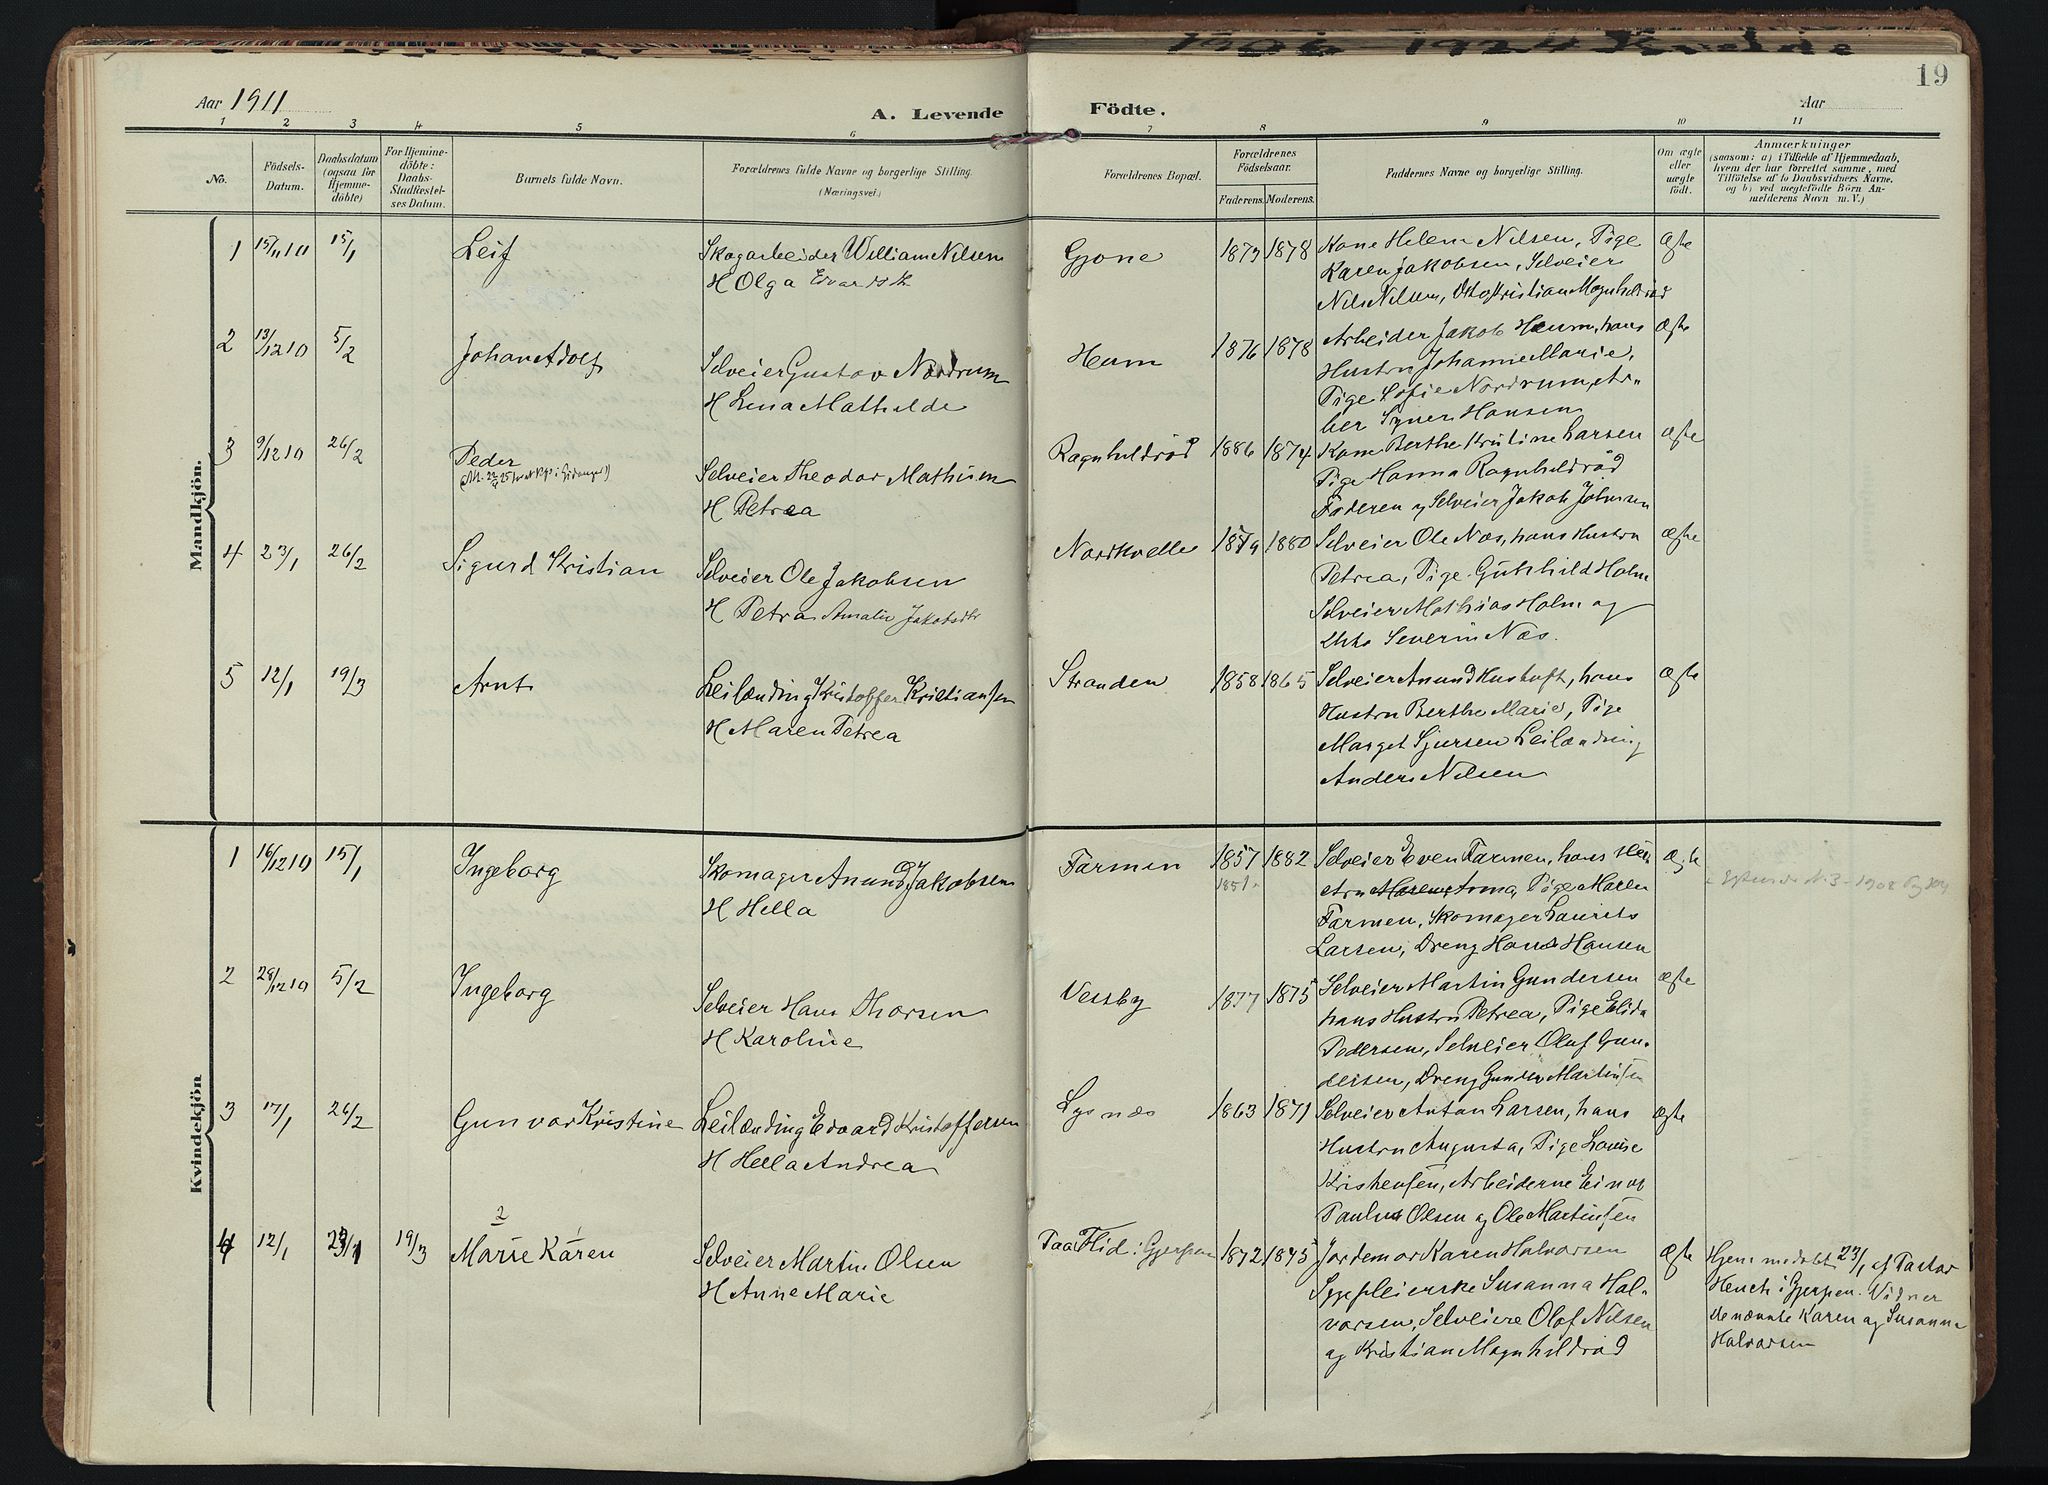 1906 1924 Kvelde
19
Aar 1911
A. Levende
Födte.
Aar
1 2 3 4 5 6 7 8 9 10 11
No.
Födsels-
Datum.
Daabsdatum
(ogsaa for
Hjemme-
döbte)
For Hjemme-
döbte:
Daabs-
Stadfestel-
ses Datum.
Barnets fulde Navn.
Forældrenes fulde Navne og borgerlige Stilling.
(Næringsvei.)
Forældrenes Bopæl.
Forældrenes
Födselsaar.
Faderens. Moderens.
Faddernes Navne og borgerlige Stilling.
Om ægte
eller
uægte
født.
Anmærkninger
(saasom: a) i Tilfælde af Hjemmedaab,
hvem der har forrettet samme, med
Tilföielse af to Daabsvidners Navne.
og b) ved uegtefödte Börn An-
melderens Navn m. V.)
Mandkjön.
1 15/11 10 15/1 Leif
Skogarbeider William Nilsen
H Olga Edvardsdt
Gjone 1873 1878
Kone Helene Nilsen, Pige
Karen Jakobsen, Selveier
Nils Nilsen, Otto Kristian Magnhildröd
Ægte
2 13/12 10 5/2 Johan Adolf
Selveier Gustav Nordrum
H Lena Mathilde
Heum 1876 1878
Arbeider Jakob Heum, hans
Hustru Johanne Marie,
Pige Sofie Nordrum, Ar-
Hansen
Ægte
3 9/12 10 26/2 Peder
Selveier Theodor Mathisen
H Petrea
Ragnhildröd 1886 1874
Kone Berthe Kristine Larsen
Pige Hanna Ragnhildröd
Faderen og Selveier Jakob Johnsen
Ægte
4 23/1 26/2 Sigurd Kristian
Selveier Ole Jakobsen
H Petra Amalie Jakobsdtr
Nordkvelle 1880
Selveier Ole Næs, hans Hustru
Petrea, Pige Gunhild Holm
Selveier Mathias Holm og
Severin Næs.
Ægte
5 12/1 19/3 Arnt
Leilænding Kristoffer Kristiansen
H Maren Petrea
Stranden 1858 1865
Selveier Anund Hustoft, hans
Hustru Berthe Marie, Pige
Marget Sjursen Leilænding
Anders Nilsen
Ægte
Kvindekjön
1 16/12 10 15/1 Ingeborg
Skomager Anund Jakobsen
H Hella
Farmen 1857 1882
1851
Selveier Even Farmen, hans Hu-
stru Maren Anna, Pige Maren
Farmen, Skomager Laurits
Larsen, Dreng Hans Hansen
Ægte
2 28/12 10 5/2 Ingeborg
Selveier Hans Thorsen
H Karoline
Vessby 1877 1875
Selveier Martin Gundersen
hans Hustru Petrea, Pige Elida
Pedersen, Selveier Olaf Gun-
dersen, Dreng Gunder Martinsen
Ægte
3 17/1 26/2 Gunvor Kristine
Leilænding Edvard Kristoffersen
H Hella Andrea
Lysnæs 1863 1871
Selveier Anton Larsen, hans
Hustru Augusta, Pige Lovise
Kristensen, Arbeiderne Einar
Paulus Olsen og Ole Martinsen
Ægte
4 12/1 23/1 19/3 2 1
Marie Karen
Selveier Martin Olsen
H Anne Marie
Paa Flid i Gjerpen 1872 1875
Jordemor Karen Halvorsen
Sygepleierske Susanna Hal-
vorsen, Selveiere Olaf Nilsen
og Kristian Magnhildröd
Ægte
Hjemmedøbt 23/1 af Pastor
Hench i Gjerpen. Vidner
de nævnte Karen og Susanna
Halvorsen